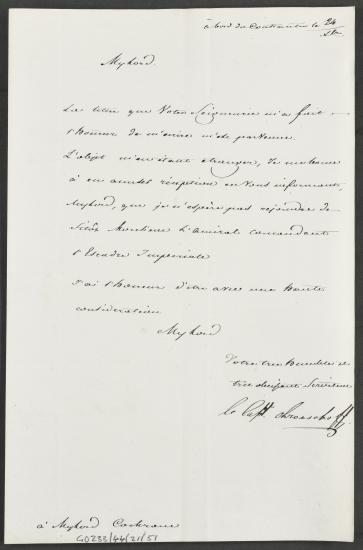 à bord du Constantin le 24
Mylord.
La lettre que Votre Seigneurie m'a fait
l'honeur de m'écrire m'est parvenue.
L'objet m'en étant étranger, Je me borne
à en accuser réception en Vous informant,
Mylord, que je n'espère pas rejoindre de
sitôt Monsieur l'Amiral comandant
l'Escadre Impériale
J'ai l'honneur d'être avec une haute
considération
Mylord
Votre très humble et
très obéissant Serviteur
le Capt.
à Mylord Cochrane
GD233/44/21/51